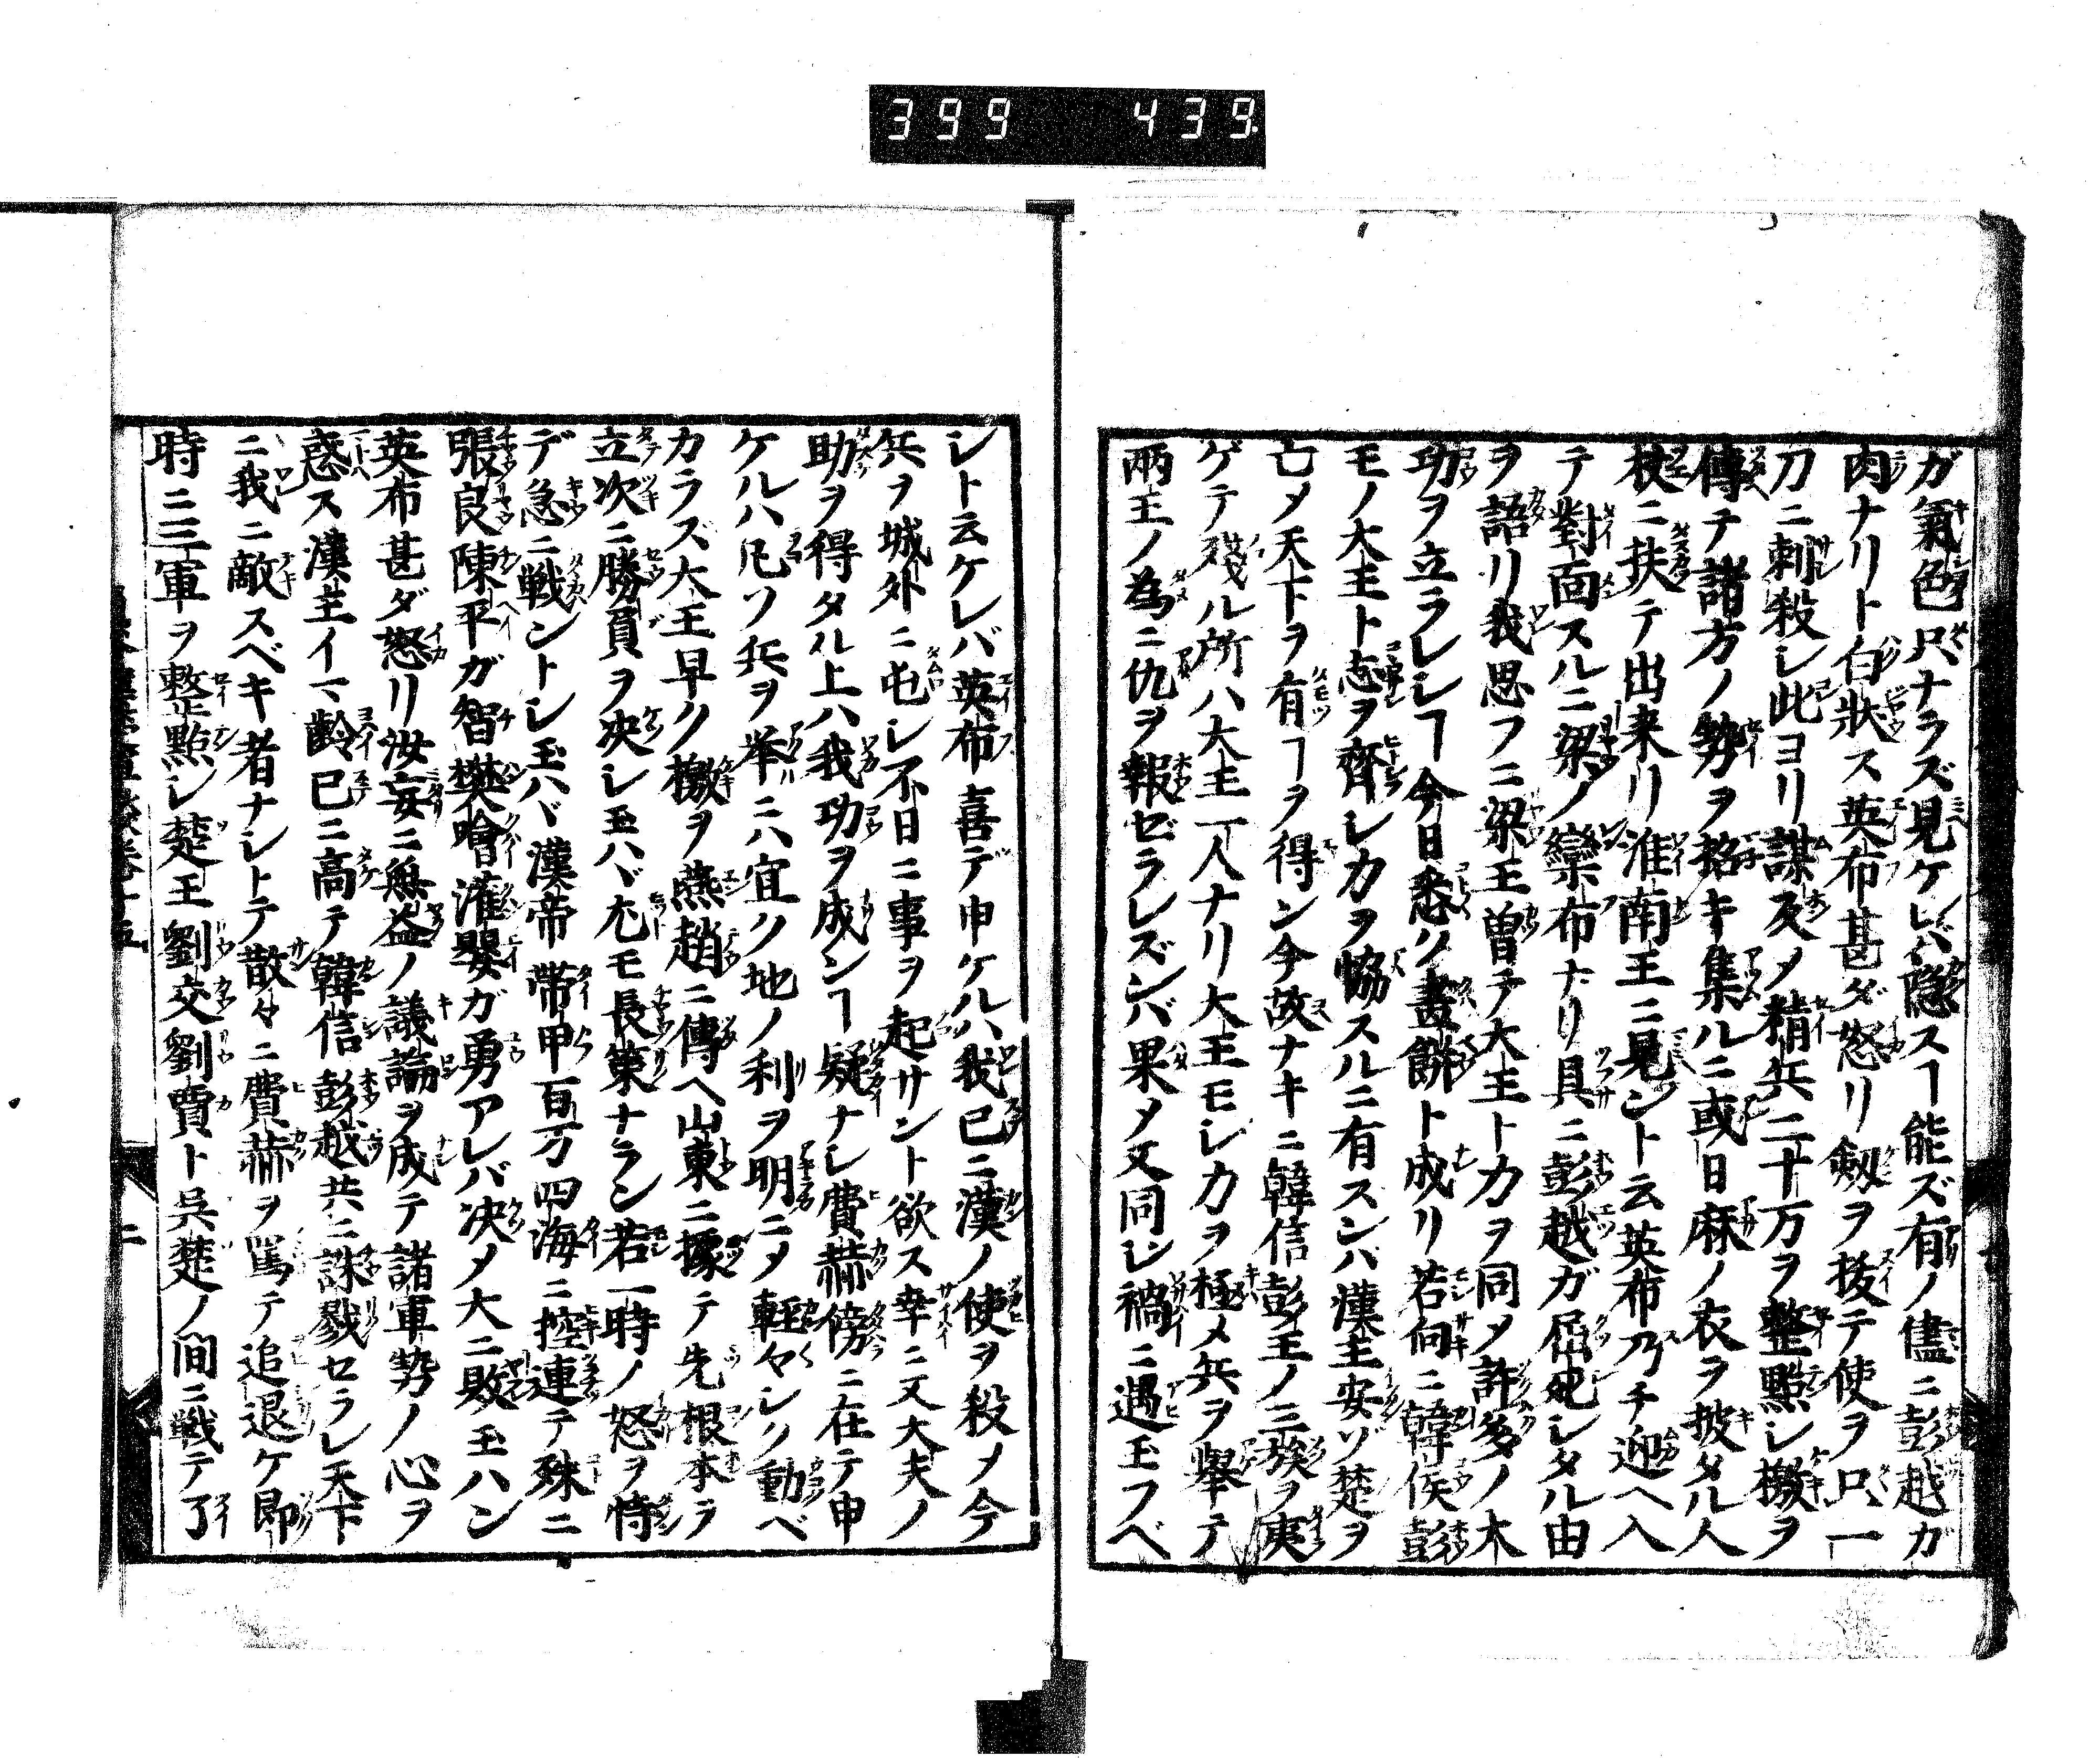 399 439
ガ氣色只ナラズ見ケレバ隠スヿ能ズ有ノ儘ニ彭越ガ
肉ナリト白狀ス英布甚ダ怒リ劔ヲ拔テ使ヲ只一
刀ニ刺殺シ此ヨリ謀反メ精兵二十万ヲ整點シ檄ヲ
傳テ諸方ノ勢ヲ招キ集ルニ或日麻ノ衣ヲ披タル人
杖ニ扶テ出来リ淮南王ニ見ント云英布乃チ迎ヘ入
テ對面スルニ梁ノ欒布ナリ具ニ彭越ガ屈死シタル由
ヲ語リ我思フニ梁王曽テ大王ト力ヲ同メ許多ノ大
功ヲ立ラレシヿ今日悉ク畫餅ト成リ若向ニ韓侯彭
モノ大王ト志ヲ齊シ力ヲ恊スルニ有スンバ漢王安ゾ楚ヲ
亡メ天下ヲ有ヿヲ得ン今故ナキニ韓信彭王ノ三族ヲ夷
ゲテ残ル所ハ大王一人ナリ大王モシ力ヲ極メ兵ヲ擧テ
兩王ノ為ニ仇ヲ報ゼラレズンバ果メ又同シ禍ニ遇玉フベ
シト云ケレバ英布喜デ申ケルハ我已ニ漢ノ使ヲ殺メ今
兵ヲ城外ニ屯シ不日ニ事ヲ起サント欲ス幸ニ又大夫ノ
助ヲ得タル上ハ我功ヲ成ンヿ疑ナシ費赫傍ニ在テ申
ケルハ凡ソ兵ヲ挙ニハ宜ク地ノ利ヲ明ニメ輕々シク動ベ
カラズ大王早ク檄ヲ燕趙ニ傳ヘ山東ニ據テ先根本ヲ
立次ニ勝負ヲ决シ玉ハヾ尤モ長策ナラン若一時ノ怒ヲ恃
デ急ニ戦ントシ玉ハヾ漢帝帶甲百万四海ニ控連テ殊ニ
張良陳平ガ智樊噲灌嬰ガ勇アレバ决メ大ニ敗玉ハン
英布甚ダ怒リ汝妄ニ無益ノ議論ヲ成テ諸軍勢ノ心ヲ
惑ス漢王イマ齢已ニ高テ韓信彭越共ニ誅戮セラレ天下
ニ我ニ敵スベキ者ナシトテ散々ニ費赫ヲ罵テ追退ケ即
時ニ三軍ヲ整點シ楚王劉交劉賈ト呉楚ノ間ニ戦テ了
二